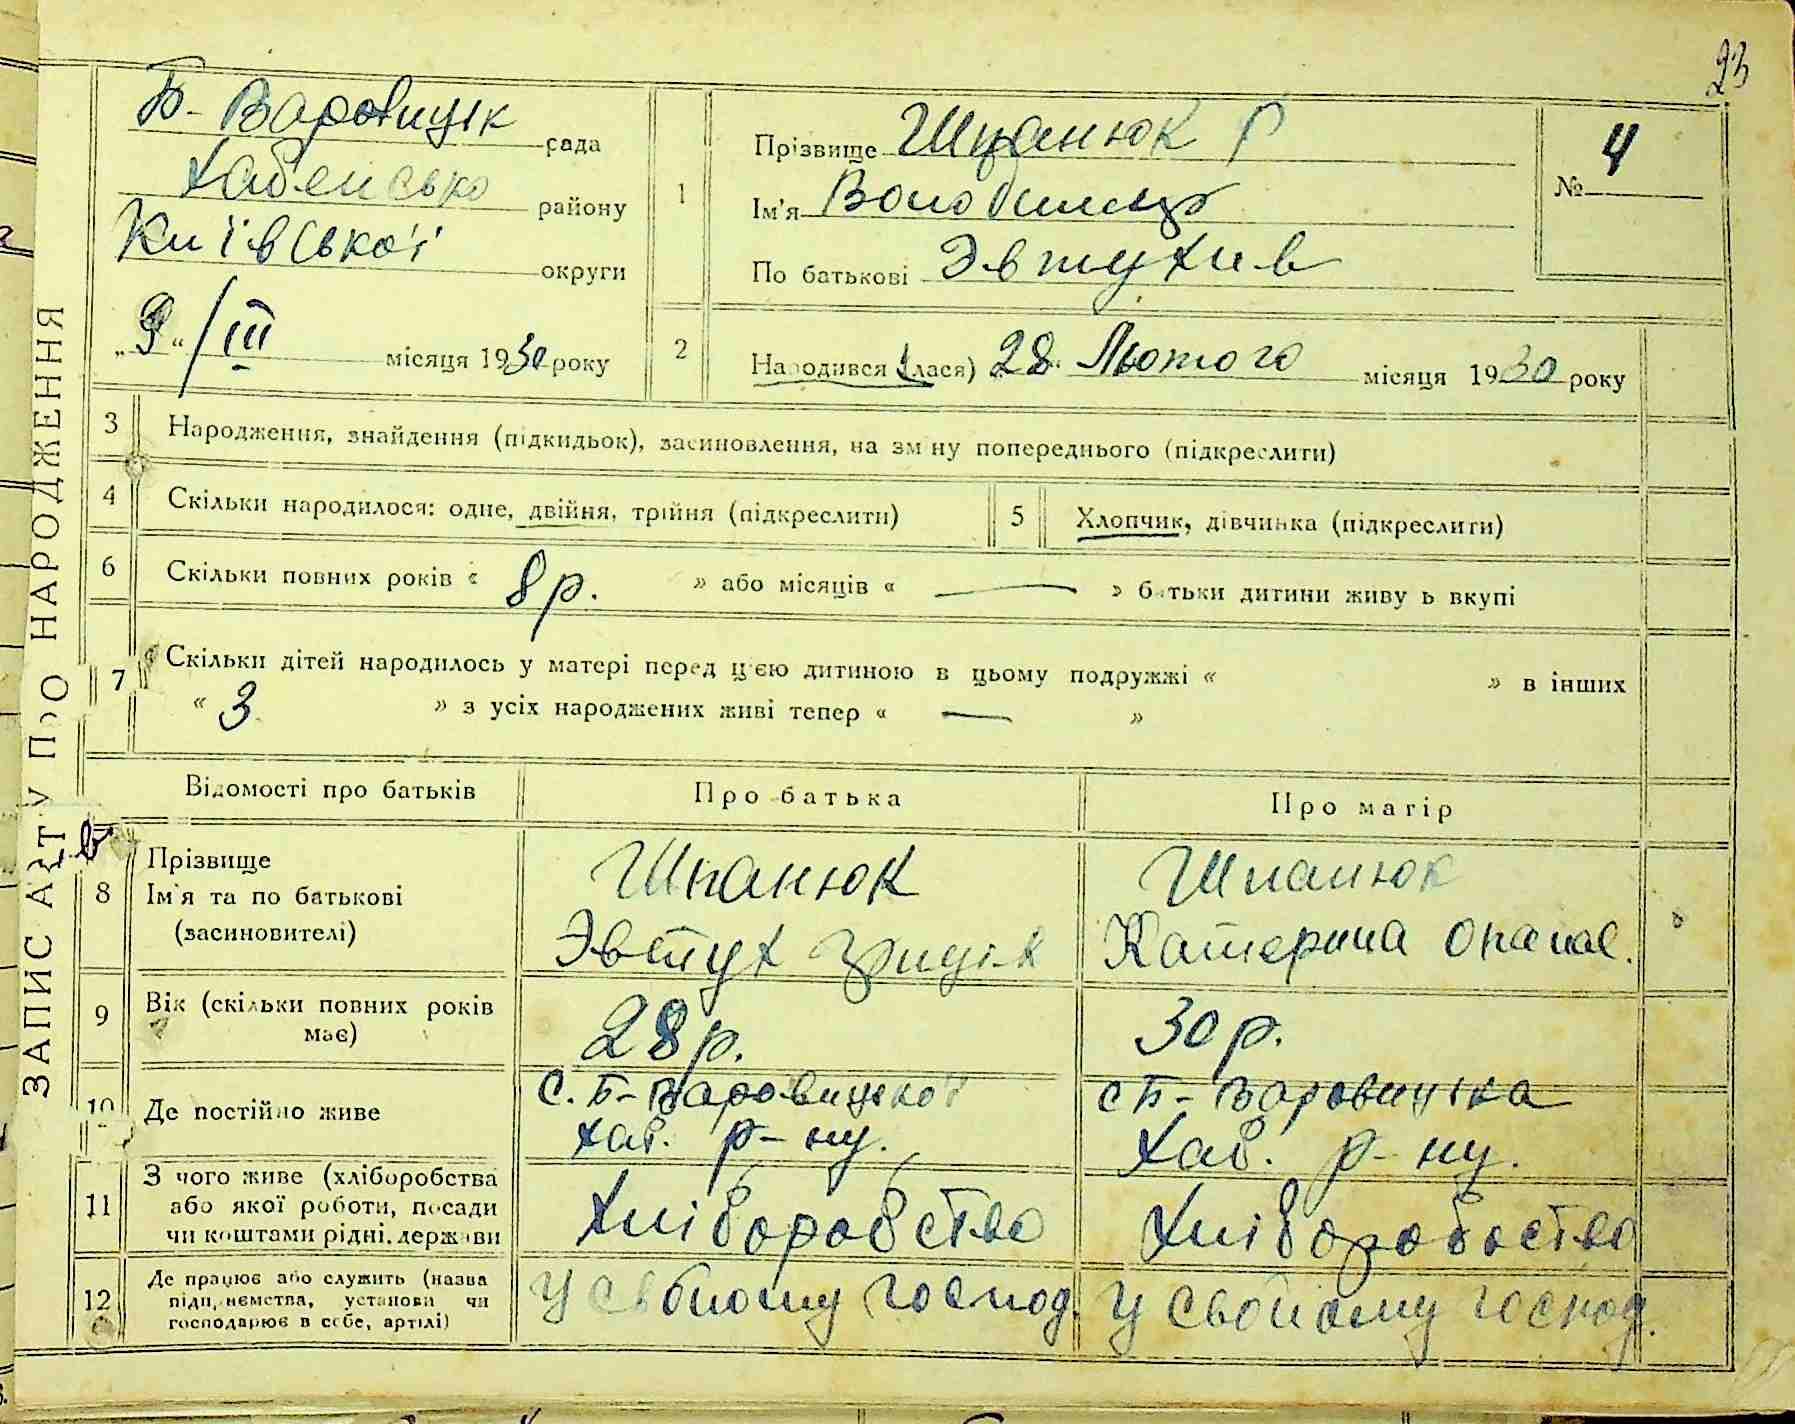 23
Б- Варовицьк сада
Хабенсько району
Київської округи
„9“/III місяця 1930 року
1 Прізвище Шпанюк
Ім'я Володимир
По батькові Эвтухив
№ 4
2 Народився (лася) 28 Лютого місяця 1930 року
ЗАПИС АКТУ ПРО НАРОДЖЕННЯ
3 Народження, знайдення (підкидьок), засиновлення, на зміну попереднього (підкреслити)
4 Скільки народилося: одне, двійня, трійня (підкреслити)
5 Хлопчик, дівчинка (підкреслити)
6 Скільки повних років « 8 р. » або місяців « — » батьки дитини живуть вкупі
7 Скільки дітей народилось у матері перед цією дитиною в цьому подружжі « » в інших
« 3 » з усіх народжених живі тепер « — »
Відомості про батьків Про батька Про матір
8 Прізвище
Ім'я та по батькові
(засиновителі)
Шпанюк
Эвтух Грицік
Шпанюк
Катерина Опанас.
9 Вік (скільки повних років
має)
28 р.
30 р.
10 Де постійно живе
с. Б- Варовицької
Хаб. р-ну.
с Б- Варовицька
Хаб. р-ну.
11 З чого живе (хліборобства
або якої роботи, посади
чи коштами рідні, держави
Хліборобство
Хлібороботство
12 Де працює або служить (назва
підприємства, установи чи
господарює в себе, артілі)
У свойому господ.
У свойому господ.